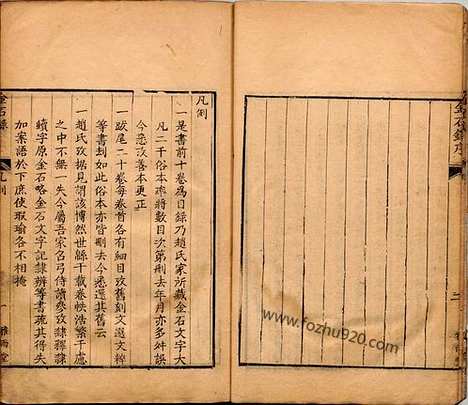 金石錄序
二
凡例
一是書前十卷爲目錄乃趙氏家所藏金石文字大
凡二千俗本率將數目次第刋去年月亦多舛誤
今悉改善本更正
一跋尾二十卷每卷首各有細目攷舊刻文選文粹
等書刦如此俗本亦皆刪去今悉還其舊云
一趙氏攷據見聞該博然世緜千載卷帙浩繁千慮
之中不無一失今屬吾家名弓侍讀參攷隷釋隷
續字原金石略金石文字記隷辨等書疏其得失
加案語於下庶使瑕瑜各不相掩
金石錄
凡例
一
雅雨堂
www.fozhu920.com